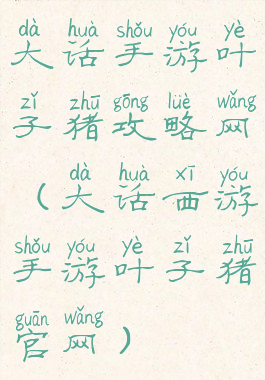 dà huà shǒu yóu yè
大话手游叶
zǐ zhū gōng lüè wǎng
子猪攻略网
dà huà xī yóu
（大话西游
shǒu yóu yè zǐ zhū
手游叶子猪
guān wǎng
官网）